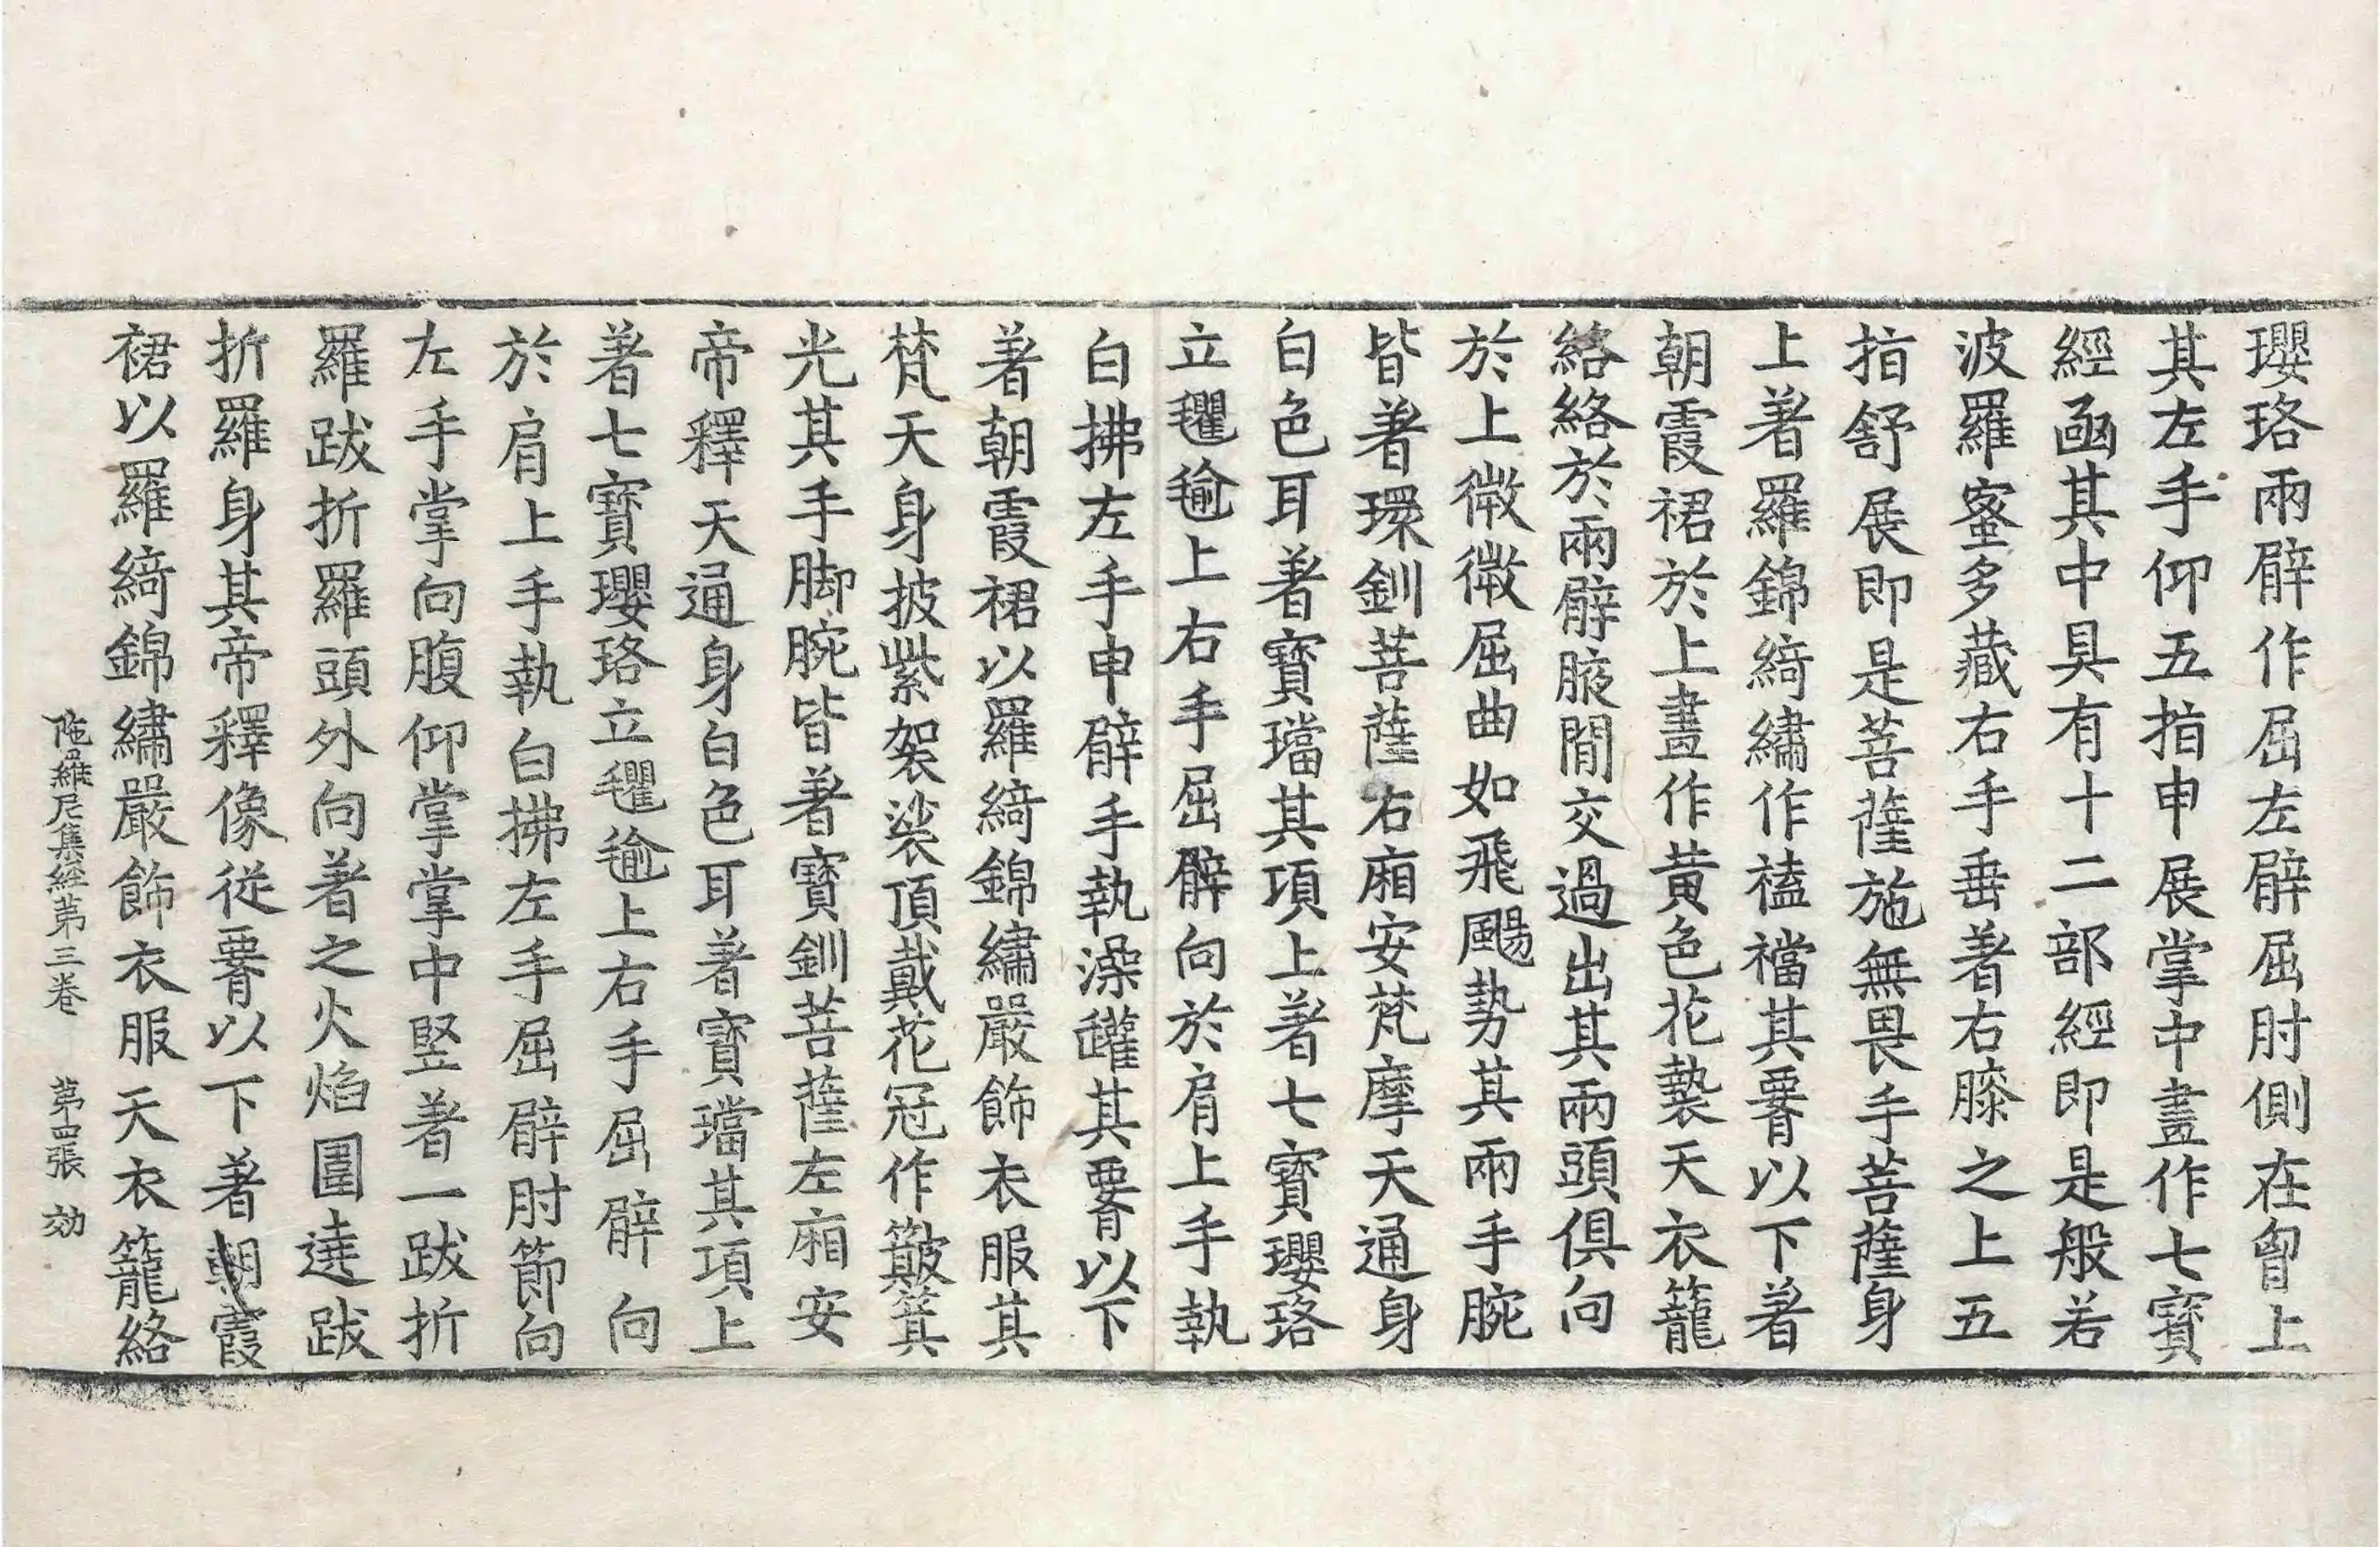 瓔珞兩臂作屈左臂屈肘側在胷上
其左手仰五指申展掌中畫作七寶
經凾其中具有十二部經即是般若
波羅蜜多藏右手垂著右膝之上五
指舒展即是菩薩施無畏手菩薩身
上著羅錦綺繡作𧞤襠其要以下著
朝霞裙於上畫作黃色花褺天衣籠
絡絡於兩臂腋閒交過出其兩頭俱向
於上微微屈曲如飛颺勢其兩手腕
皆著環釧菩薩右廂安梵摩天通身
白色耳著寶璫其項上著七寶瓔珞
立氍毹上右手屈臂向於肩上手執
白拂左手申臂手執澡罐其要以下
著朝霞裙以羅綺錦繡嚴飾衣服其
梵天身披紫袈裟頂戴花冠作簸箕
光其手脚腕皆著寶釧菩薩左廂安
帝釋天通身白色耳著寶璫其項上
著七寶瓔珞立氍毹上右手屈臂向
於肩上手執白拂左手屈臂肘節向
左手掌向腹仰掌掌中竪著一跋折
羅跋折羅頭外向著之火焰圍遶跋
折羅身其帝釋像從要以下著朝霞
裙以羅綺錦繡嚴飾衣服天衣籠絡
陁羅尼集經第三卷 第四張 効